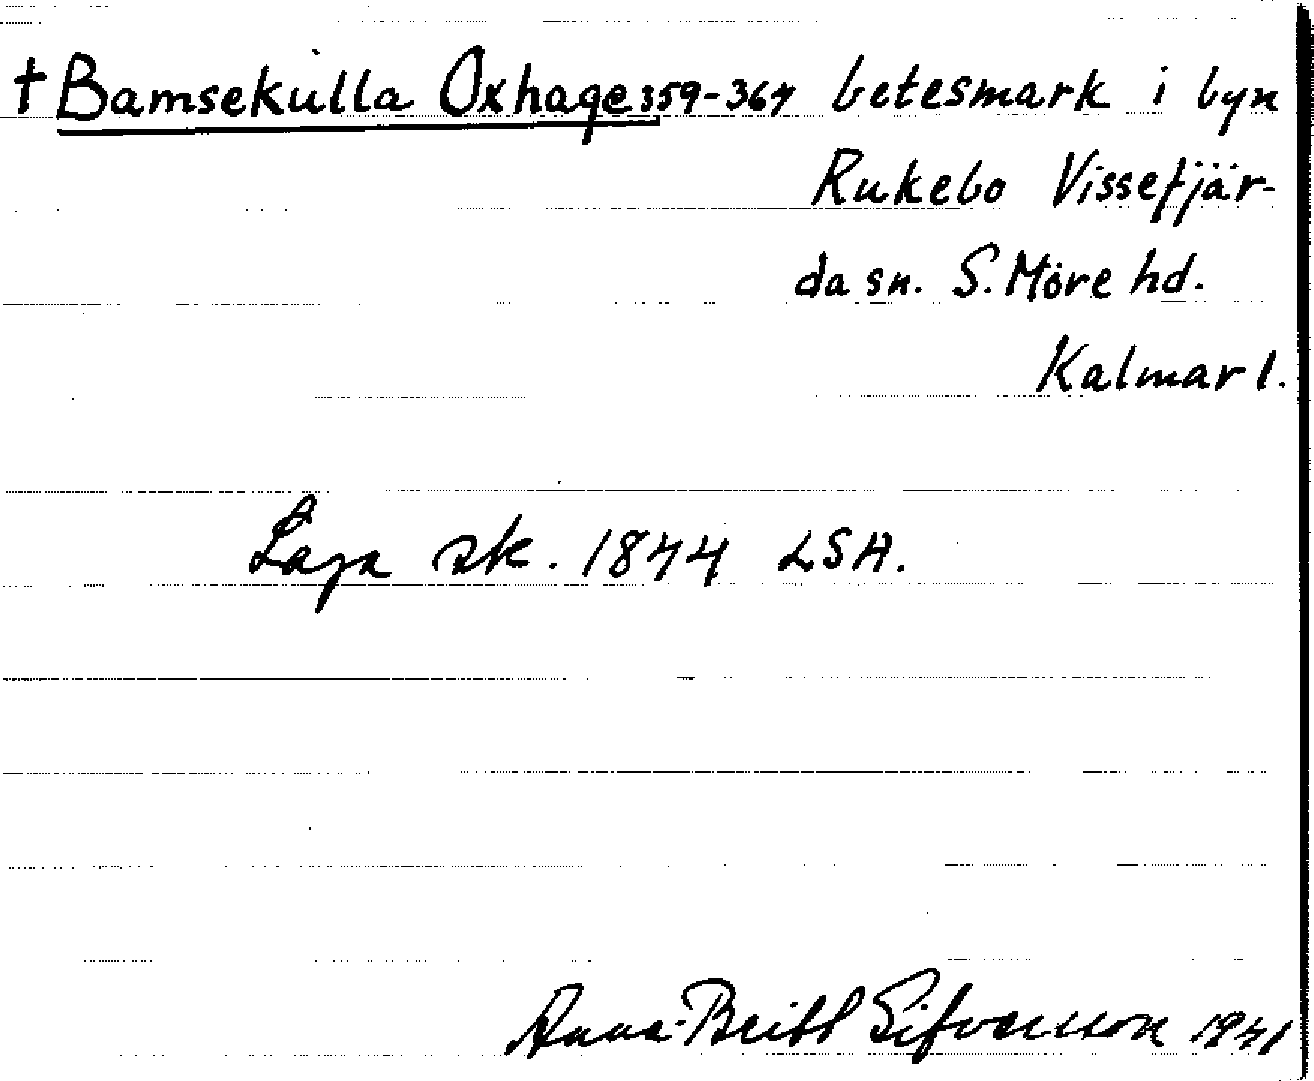 † Bamsekulla Oxhage 359-367 betesmark i byn
Rukebo Vissefjär-
da sn. S. Möre hd.
Kalmar l.
Laga sk. 1844 LSA.
Anna-Britt Sifversson 1941